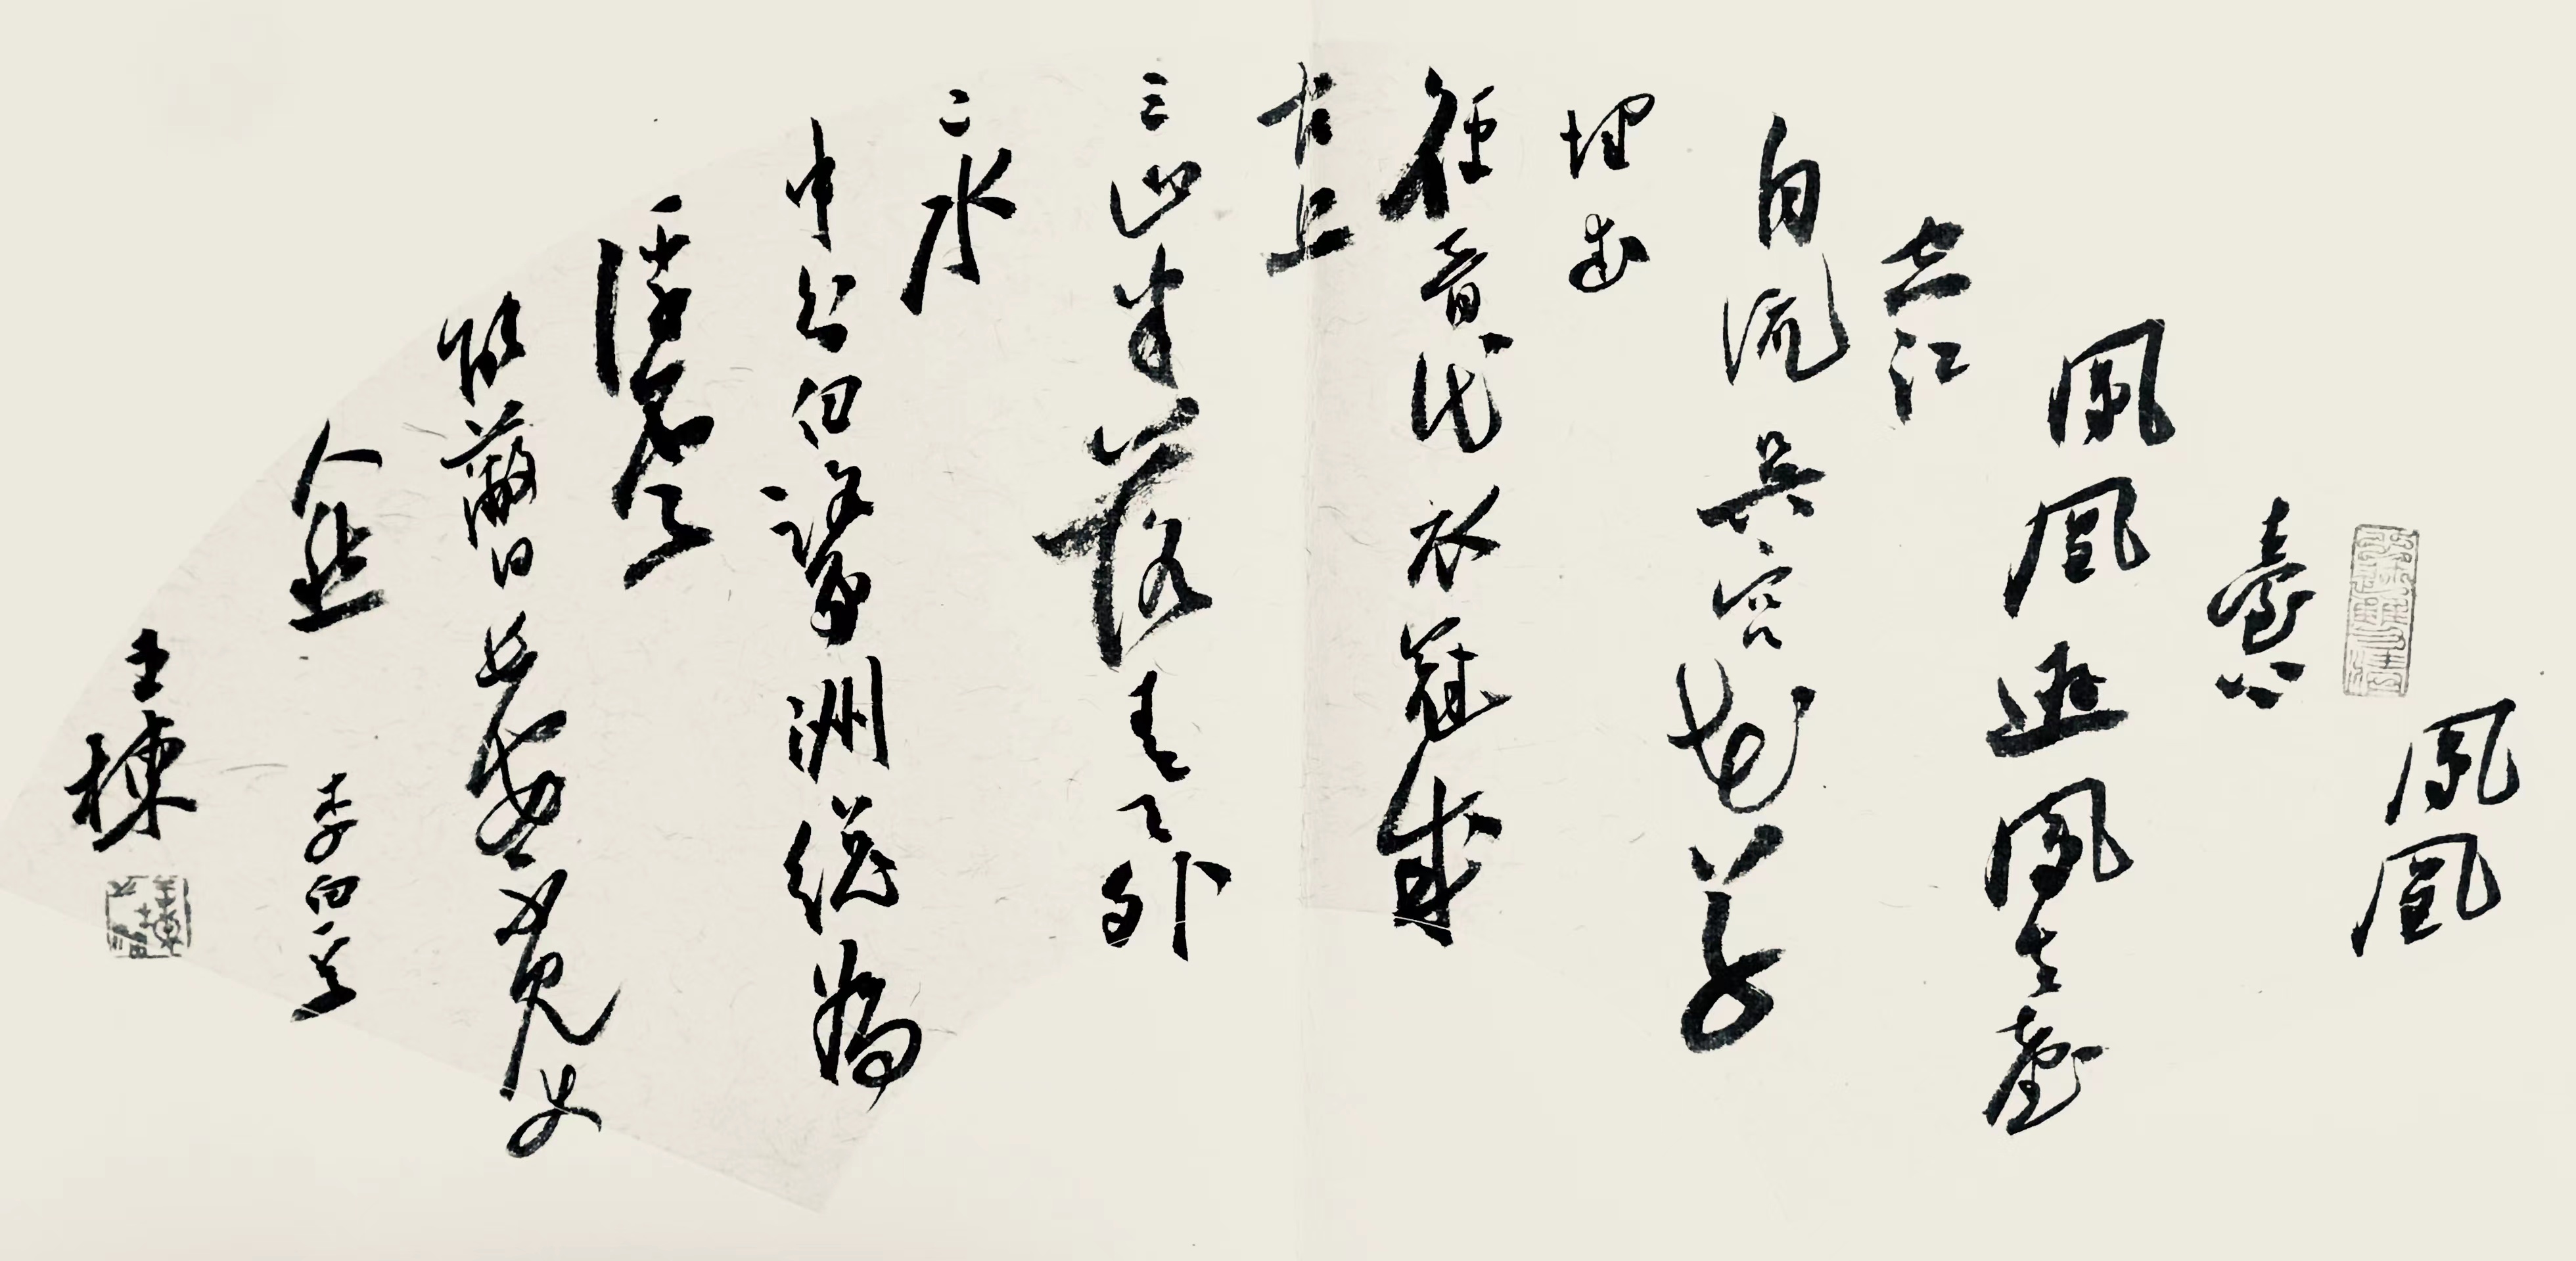 鳳凰
臺上
鳳凰遊鳳去臺
空江
自流吳宮花草
埋幽
徑晉代衣冠成
古丘
三山半落青天外
二水
中分白鷺洲總為
浮雲
能蔽日長安不見使
人愁 李白
王棟